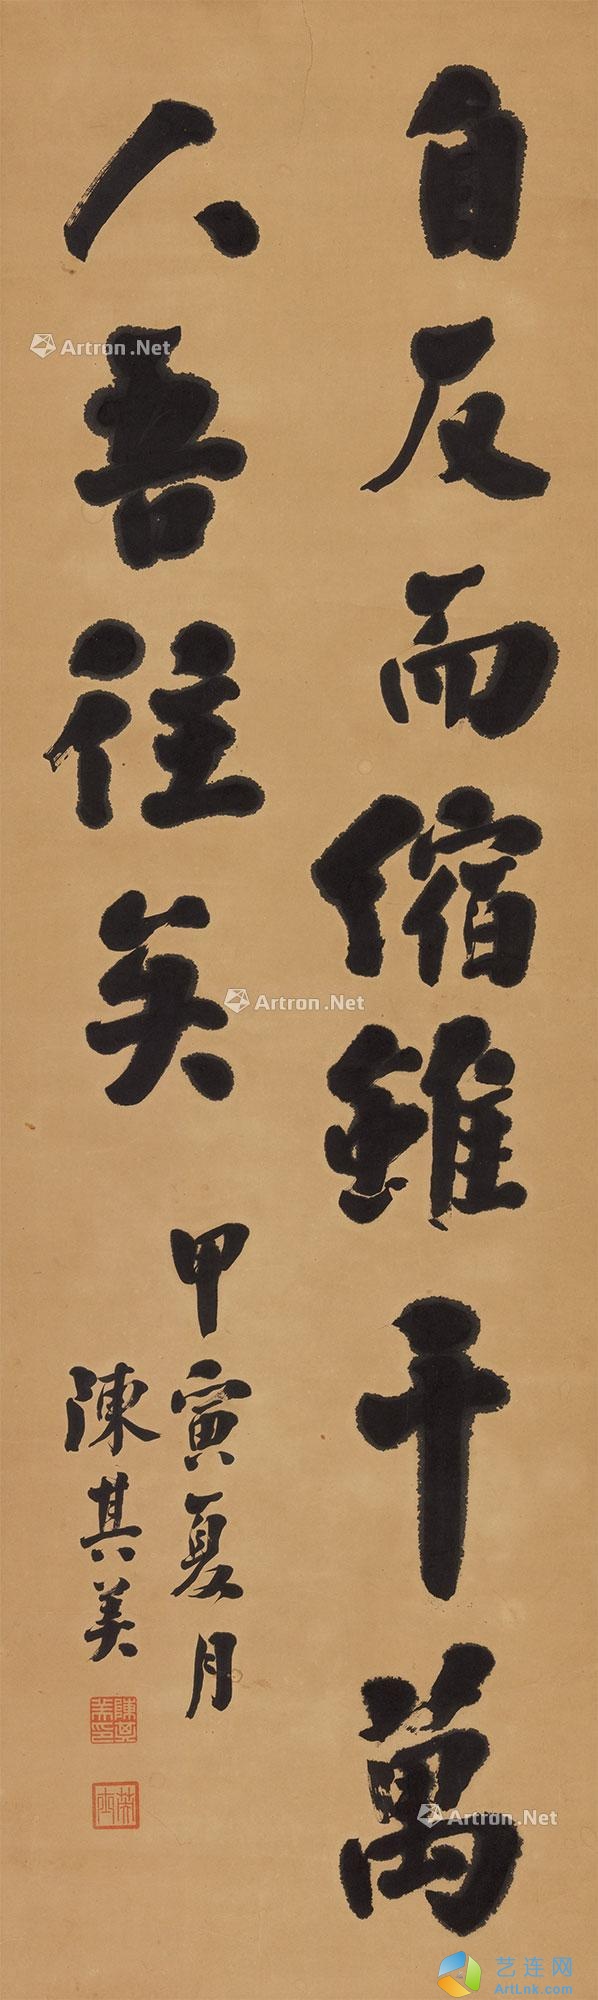 自反而縮雖千萬
人吾往矣
甲寅夏月
陳其美
陳其美印
英士
Artron.Net
Artron.Net
Artron.Net
艺连网
ArtLnk.com